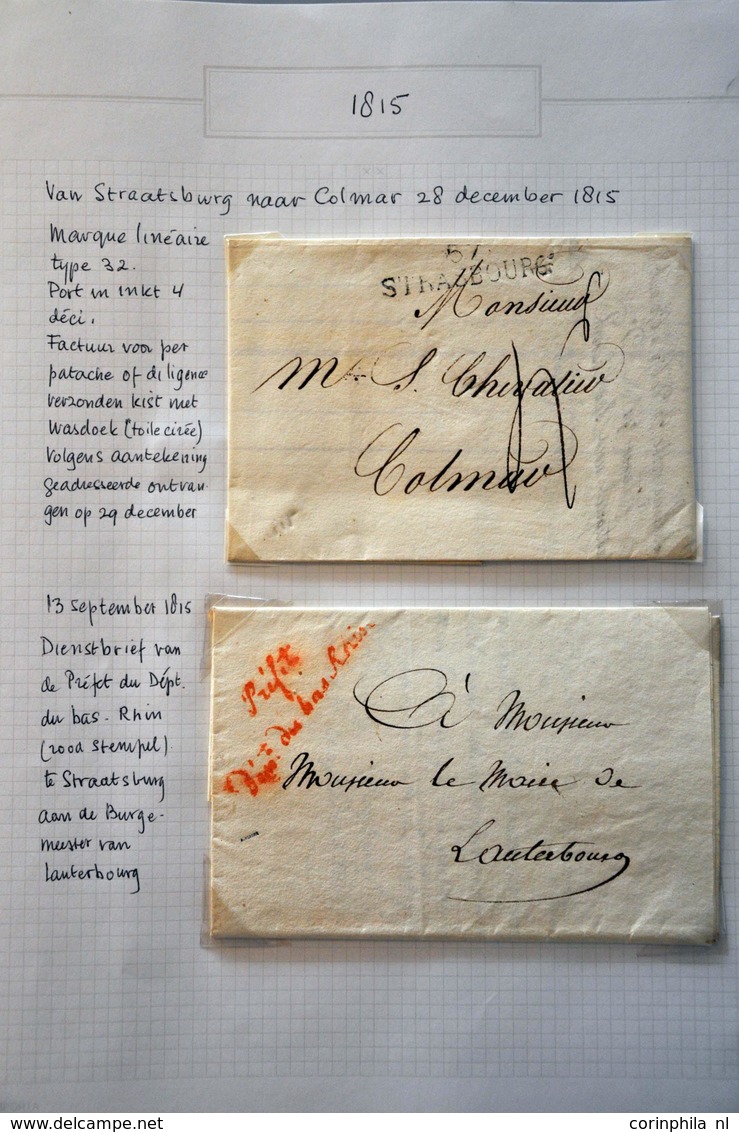 1815
Van Straatsburg naar Colmar 28 december 1815
Marque linéaire
type 32.
Port in inkt 4
déci.
Factuur voor per
patache of diligence
verzonden kist met
Wasdoek (toile cirée)
Volgens aantekening
geadresseerde ontvan-
gen op 29 december
67
STRASBOURG
Monsieur
Mr S. Chevalier
Colmar
13 september 1815
Dienstbrief van
de Préfet du Dépt.
du bas-Rhin
(rood stempel)
te Straatsburg
aan de Burge-
meester van
Lauterbourg
Préfet
Dépt. du bas Rhin
À Monsieur
Monsieur le Maire de
Lauterbourg
corinphila nl